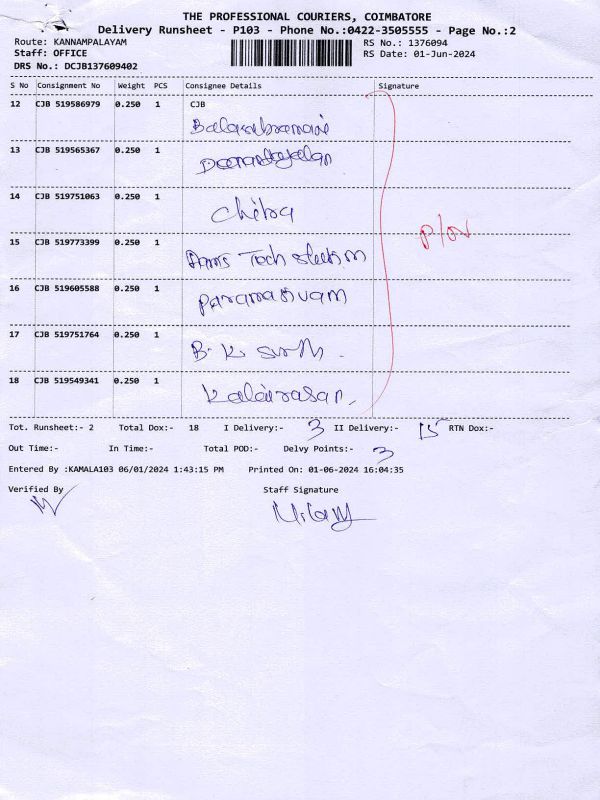 THE PROFESSIONAL COURIERS, COIMBATORE
Delivery Runsheet - P103 - Phone No.:0422-3505555 - Page No.:2
Route: KANNAMPALAYAM RS No.: 1376094
Staff: OFFICE RS Date: 01-Jun-2024
DRS No.: DCJB137609402
S No Consignment No Weight PCS Consignee Details Signature
12 CJB 519586979 0.250 1 CJB
13 CJB 519565367 0.250 1
14 CJB 519751063 0.250 1 Chitra
15 CJB 519773399 0.250 1 Tech
16 CJB 519605588 0.250 1 Paramasivam
17 CJB 519751764 0.250 1 B. K.
18 CJB 519549341 0.250 1 Kalaiarasan
Tot. Runsheet:- 2 Total Dox:- 18 I Delivery:- 3 II Delivery:- 15 RTN Dox:-
Out Time:- In Time:- Total POD:- Delvy Points:- 3
Entered By :KAMALA103 06/01/2024 1:43:15 PM Printed On: 01-06-2024 16:04:35
Verified By Staff Signature